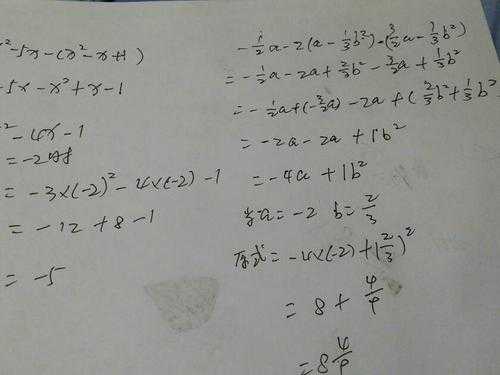 ²-5x-(x²-x+1)
-5x-x²+x-1
²-4x-1
=-2时
=-3×(-2)²-4×(-2)-1
=-12+8-1
=-5
-1/2a-2(a-1/3b²)-(3/2a-1/3b²)
=-1/2a-2a+2/3b²-3/2a+1/3b²
=-1/2a+(-3/2a)-2a+(2/3b²+1/3b²
=-2a-2a+1b²
=-4a+1b²
当a=-2 b=2/3
原式=-4×(-2)+(2/3)²
=8+4/9
=8 4/9